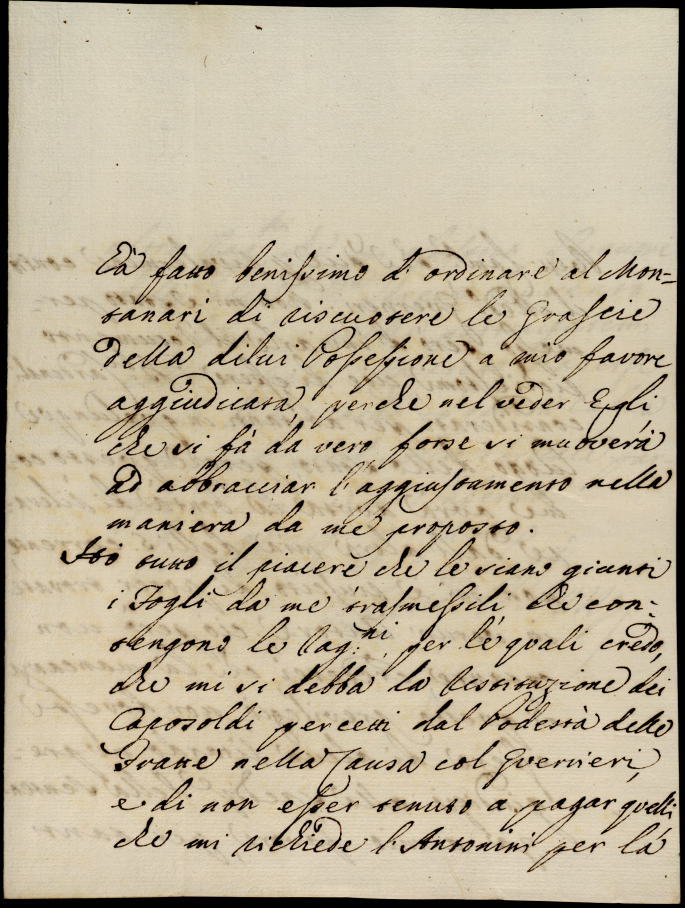 Hà fatto benissimo d'ordinare al Mon=
tanari di riscuotere le Grascie
della dilui Possessione a mio favore
aggiudicata, perche nel veder Egli
che si fà da vero, forse si muoverà
ad abbracciar l'aggiustamento nella
maniera da me proposto.
Hò tutto il piacere che le siano giunti
i Fogli da me trasmessili che con=
tengono le Rag:ni, per le quali credo,
che mi si debba la Restituzione dei
Caposoldi percetti dal Podestà delle
Fratte nella Causa col Guerrieri,
e di non esser tenuto a pagar quelli
che mi richiede l'Antonini per la